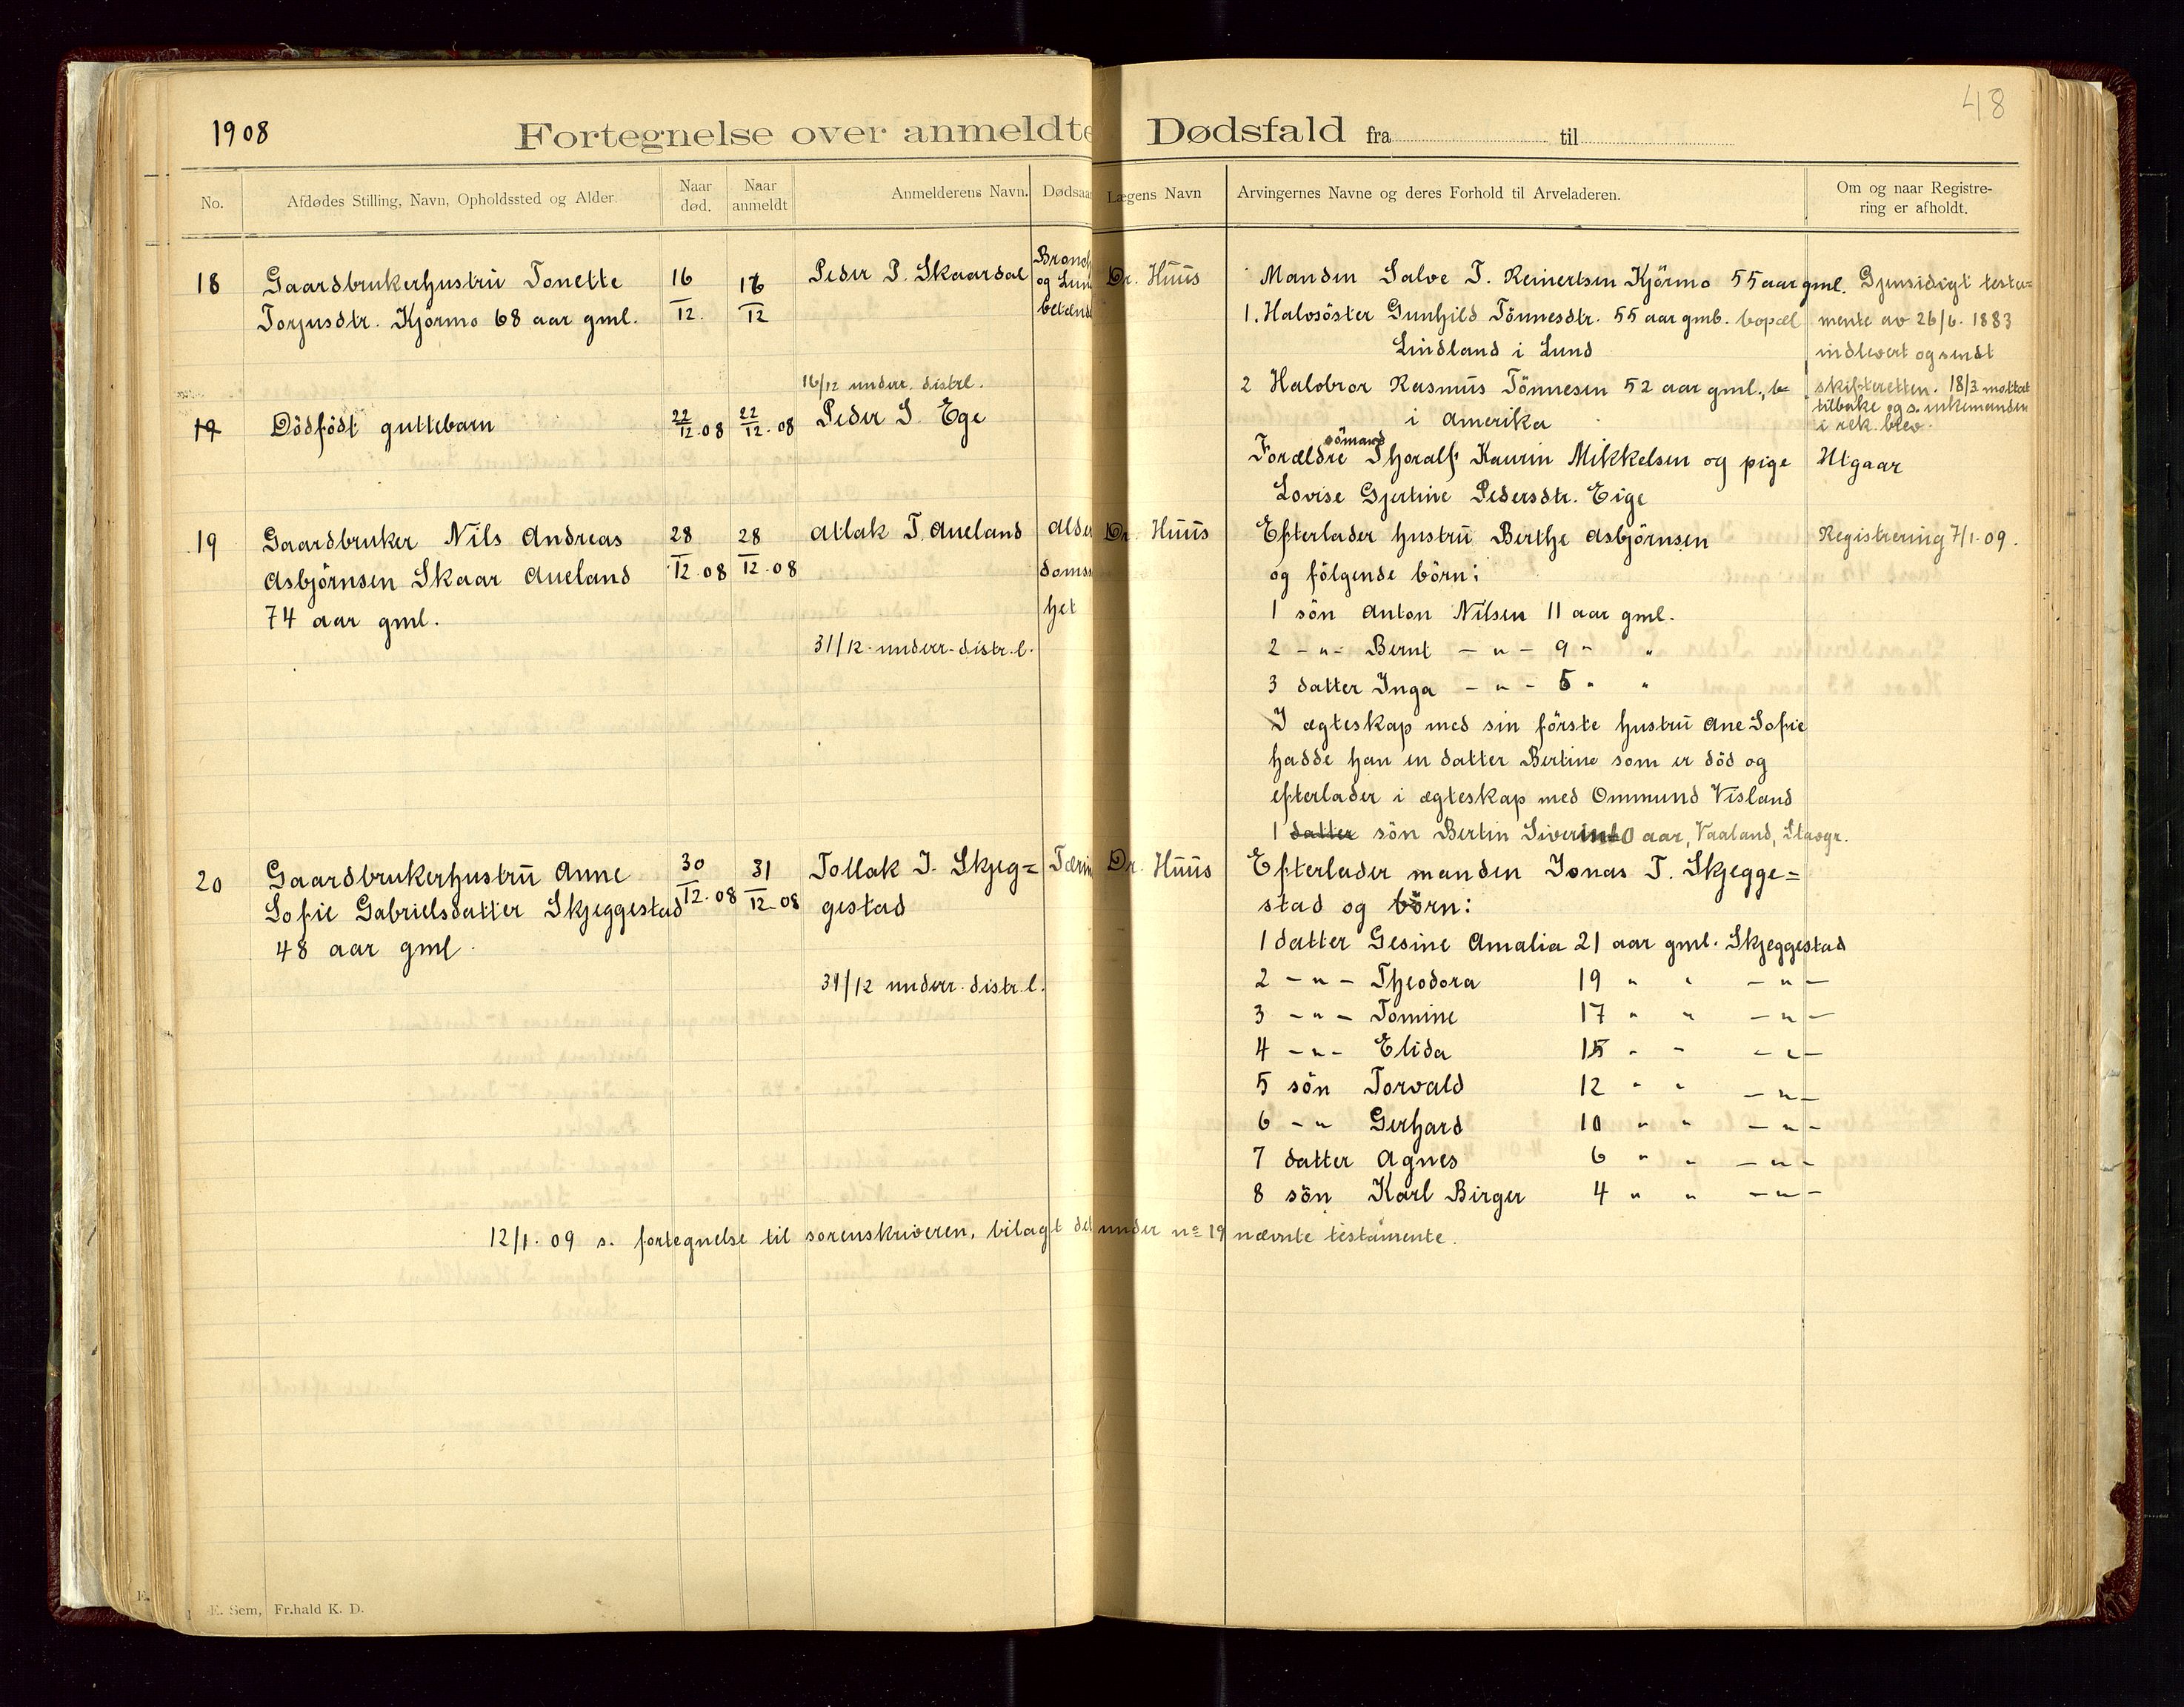 1908
Fortegnelse over anmeldte Dødsfald fra til
48
No.
Afdødes Stilling, Navn, Opholdssted og Alder.
Naar død.
Naar anmeldt
Anmelderens Navn.
Dødsaar
Lægens Navn
Arvingernes Navne og deres Forhold til Arveladeren.
Om og naar Registre-
ring er afholdt.
18 Gaardbrukerhustru Tonette
Torjusdtr. Kjørmo 68 aar gml.
16/12.
16/12
Peder P. Skaardal
16/12 underr. distrl.
Bronch
og Lun
betænd
Dr. Huus
Manden Salve T. Reinertsen Kjørmo 55 aar gml.
1. Halvsöster Gunhild Tönnesdtr. 55 aar gmb. bopæl
Lindland i Lund
2 Halvbror Rasmus Tönnesen 52 aar gml., b-
i Amerika
Gjensidigt testa=
mente av 26/6. 1883
indlevert og sendt
skifteretten. 18/3 mottat
tilbake og s. enkemanden
i rek. blev.
19 Dödfödt guttebarn
22/12.08
22/12.08
Peder S. Ege
Forældre sömand Thoralf Kaurin Mikkelsen og pige
Lovise Gjertine Pedersdtr. Eige
Utgaar
19 Gaardbruker Nils Andreas
Asbjörnsen Skaar Aueland
74 aar gml.
28/12.08
28/12.08
Atlak T Aueland
31/12. underr. distr.l.
Alder
doms
het
Dr. Huus
Efterlader hustru Berthe Asbjörnsen
og fölgende börn:
1 sön Anton Nilsen 11 aar gml.
2 -"- Bernt -"- 9 " "
3 datter Inga -"- 5 " "
I ægteskap med sin förste hustru Ane Sofie
hadde han en datter Bertine som er död og
efterlader i ægteskap med Ommund Visland
1 datter sön Bertin Siverin 10 aar, Vaaland, Stavgr.
Registrering 7/1.09.
20 Gaardbrukerhustru Anne
Sofie Gabrielsdatter Skjeggestad
48 aar gml.
30/12.08
31/12.08
Tollak J. Skjeg=
gestad
31/12 underr. distr.l.
Tærin
Dr. Huus
Efterlader manden Jonas T. Skjegge=
stad og börn:
1 datter Gesine Amalia 21 aar gml. Skjeggestad
2 -"- Theodora 19 " " -"-
3 -"- Tomine 17 " " -"-
4 -"- Elida 15 " " -"-
5 sön Torvald 12 " " -"-
6 -" Gerhard 10 " " -"-
7 datter Agnes 6 " " -"-
8 sön Karl Birger 4 " " -"-
12/1.09 s. fortegnelse til sorenskriveren, bilagt det under no 19 nævnte testamente.
E. Sem, Fr.hald K. D.